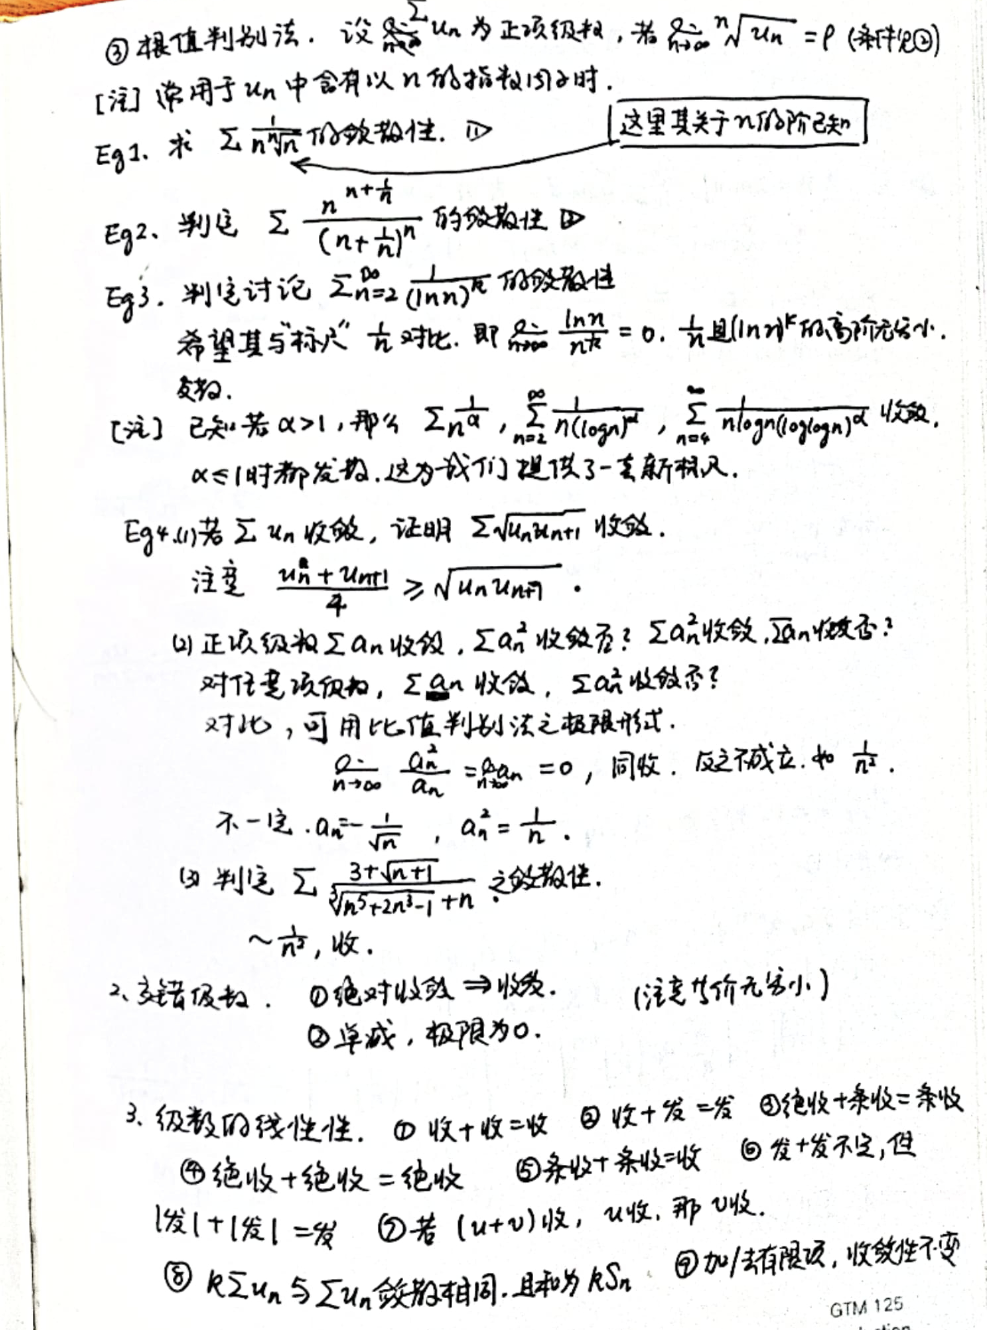 ③ 根值判别法. 设 lim_{n→∞} Σ u_n 为正项级数, 若 lim_{n→∞} ⁿ√u_n = ρ (条件见②)
[注] 常用于 u_n 中含有以 n 的指数因子时.
这里其关于n的阶已知
Eg1、求 Σ 1/(n ⁿ√n) 的敛散性.
Eg2、判定 Σ n^{n+1/n}/(n+1/n)^n 的敛散性
Eg3. 判定讨论 Σ_{n=2}^∞ 1/(ln n)^k 的敛散性
希望其与"标尺" 1/n 对比. 即 lim_{n→∞} ln n/n^k = 0. 1/n 且(ln n)^k 的高阶无穷小.
发散.
[注] 已知若 α>1, 那么 Σ 1/n^α, Σ_{n=2}^∞ 1/(n(logn)^α), Σ_{n=4}^∞ 1/(nlogn(loglogn)^α) 收敛.
α≤1时都发散. 这为我们提供了一套新标尺.
Eg4.(1)若 Σ u_n 收敛, 证明 Σ√(u_n u_{n+1}) 收敛.
注意 (u_n + u_{n+1})/4 ≥ √(u_n u_{n+1}).
(2) 正项级数 Σ a_n 收敛, Σ a_n² 收敛否? Σ a_n² 收敛, Σ a_n 收敛否?
对任意项级数, Σ a_n 收敛, Σ a_n² 收敛否?
对比, 可用比值判别法之极限形式.
lim_{n→∞} a_n²/a_n = lim_{n→∞} a_n = 0, 同收. 反之不成立. 如 1/n².
不一定. a_n = -1/√n, a_n² = 1/n.
(3) 判定 Σ (3+√(n+1))/(√(n⁵+2n³-1)+n) 之敛散性.
~ 1/n², 收.
2、交错级数. ① 绝对收敛 ⇒ 收敛. (注意等价无穷小)
② 单减, 极限为0.
3. 级数的线性性. ① 收+收=收 ② 收+发=发 ③ 绝收+条收=条收
④ 绝收+绝收=绝收 ⑤ 条收+条收=收 ⑥ 发+发不定, 但
|发|+|发|=发 ⑦ 若 (u+v)收, u收, 那 v收.
⑧ kΣu_n 与 Σu_n 敛散相同. 且和为 kS_n ⑨ 加/去有限项, 收敛性不变
GTM 125